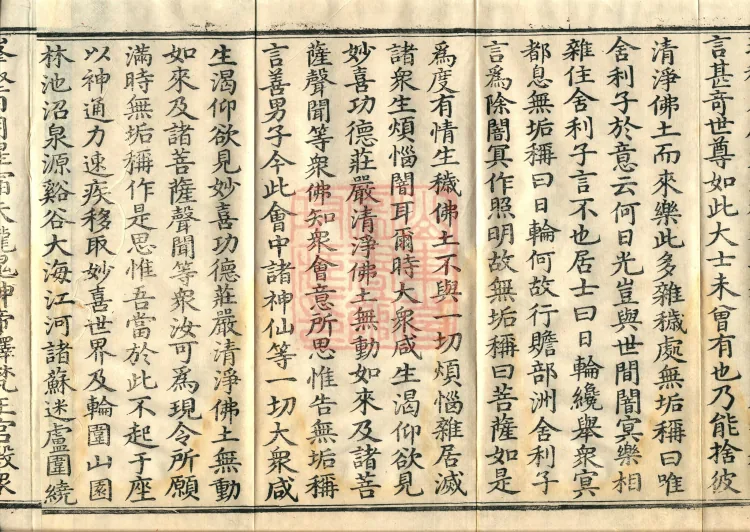 言甚奇世尊如此大士未曾有也乃能捨彼
清淨佛土而來樂此多雜穢處無垢稱曰唯
舍利子於意云何日光豈與世間闇冥樂相
雜住舍利子言不也居士曰日輪纔舉眾冥
都息無垢稱曰日輪何故行贍部洲舍利子
言為除闇冥作照明故無垢稱曰菩薩如是
為度有情生穢佛土不與一切煩惱雜居滅
諸衆生煩惱闇耳爾時大衆咸生渴仰欲見
妙喜功德莊嚴清淨佛土無動如來及諸菩
薩聲聞等衆佛知衆會意所思惟告無垢稱
言善男子今此會中諸神仙等一切大衆咸
生渴仰欲見妙喜功德莊嚴清淨佛土無動
如來及諸菩薩聲聞等衆汝可為現令所願
滿時無垢稱作是思惟吾當於此不起于座
以神通力速疾移取妙喜世界及輪圍山園
林池沼泉源谿谷大海江河諸蘇迷盧圍繞
天龍鬼神帝釋梵王宮殿衆